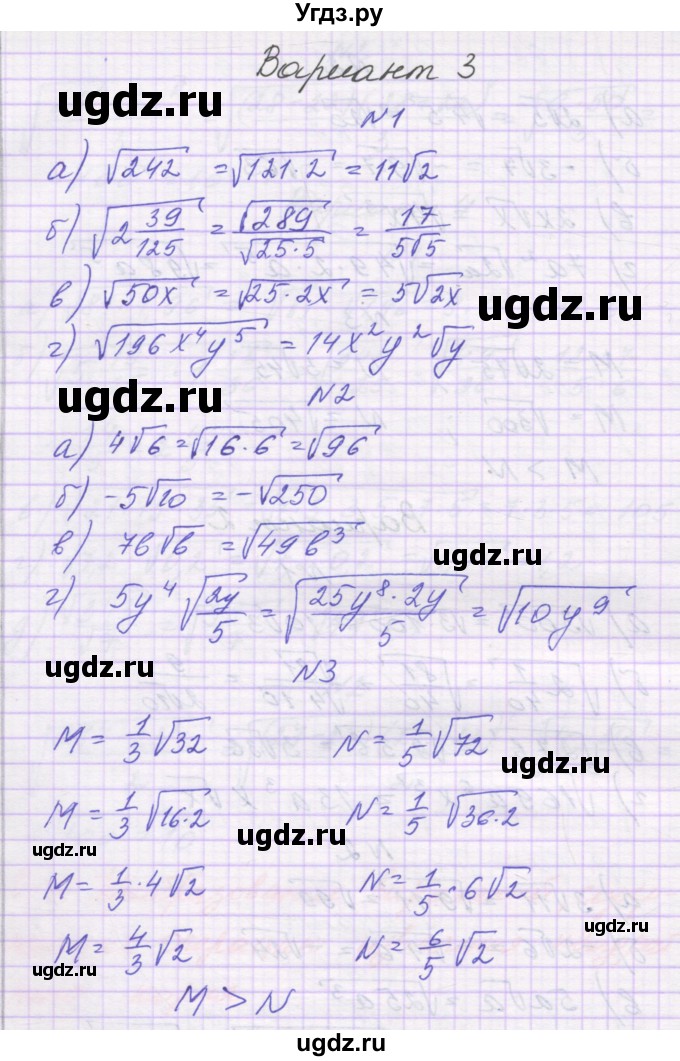 Угдз.ру
Вариант 3
ugdz.ru
N1
а) √242 = √(121·2) = 11√2
б) √(2 39/125) = √289/√(25·5) = 17/(5√5)
в) √(50x) = √(25·2x) = 5√(2x)
ugdz.ru
г) √(196x⁴y⁵) = 14x²y²√y
ugdz.ru
N2
а) 4√6 = √(16·6) = √96
б) -5√10 = -√250
в) 7b√b = √(49b³)
ugdz.ru
г) 5y⁴√(2y/5) = √(25y⁸·2y/5) = √(10y⁹)
ugdz.ru
N3
M = 1/3 √32 N = 1/5 √72
ugdz.ru
M = 1/3 √(16·2) N = 1/5 √(36·2)
ugdz.ru
ugdz.ru
M = 1/3 · 4√2 N = 1/5 · 6√2
ugdz.ru
M = 4/3 √2 N = 6/5 √2
ugdz.ru
M > N
Угдз.ру